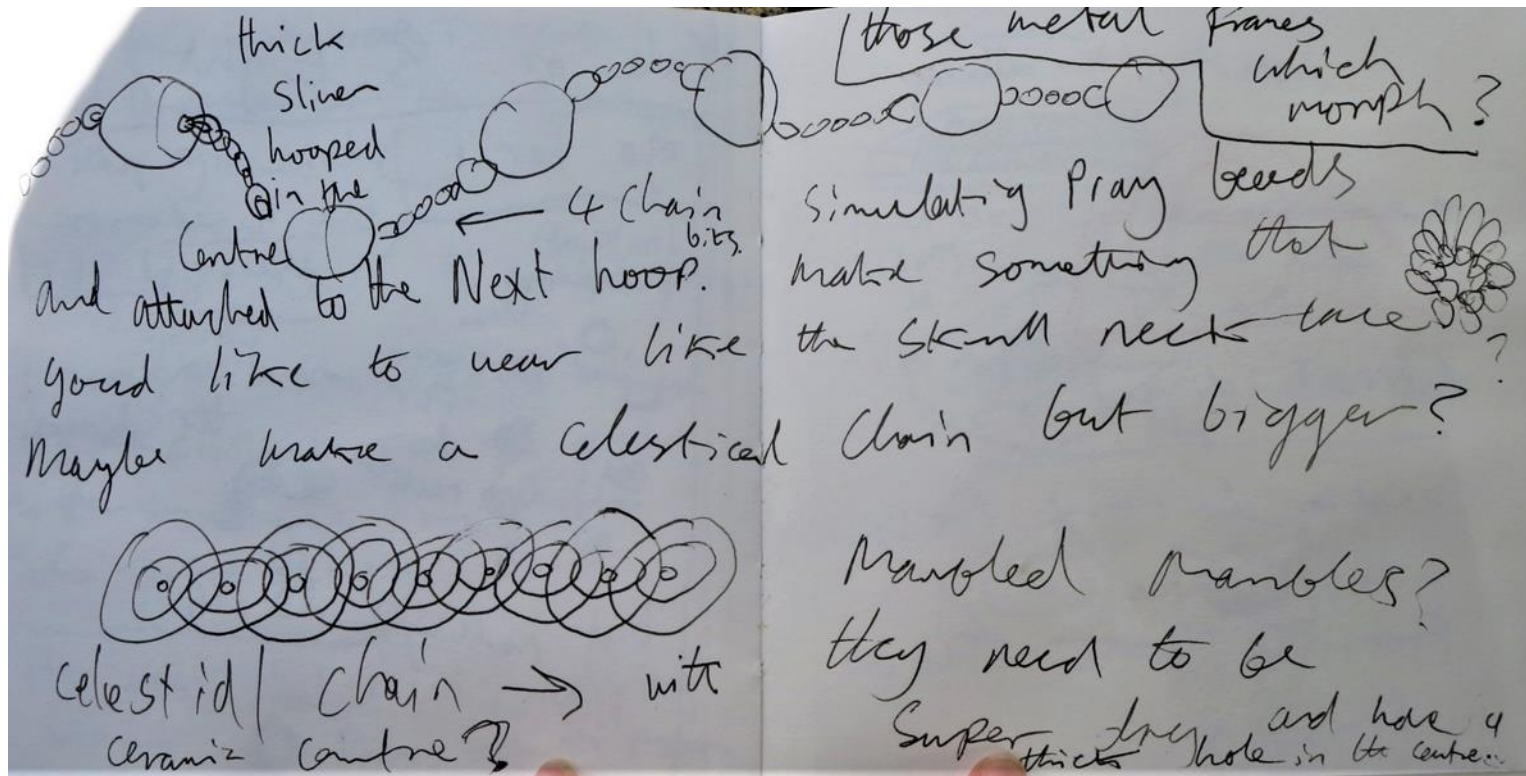 thick
sliver
hooped
in the
Centre
← 4 Chain
bits.
and attached to the Next hoop.
youd like to wear like
Maybe make a celestical
celestial chain → with
ceramic centre?
those metal frames
which
morph?
Simulating Pray beads
make something that
the skull neck lace
?
Chain but bigger?
Marbled Marbles?
they need to be
Super dry and have a
thick hole in the centre..